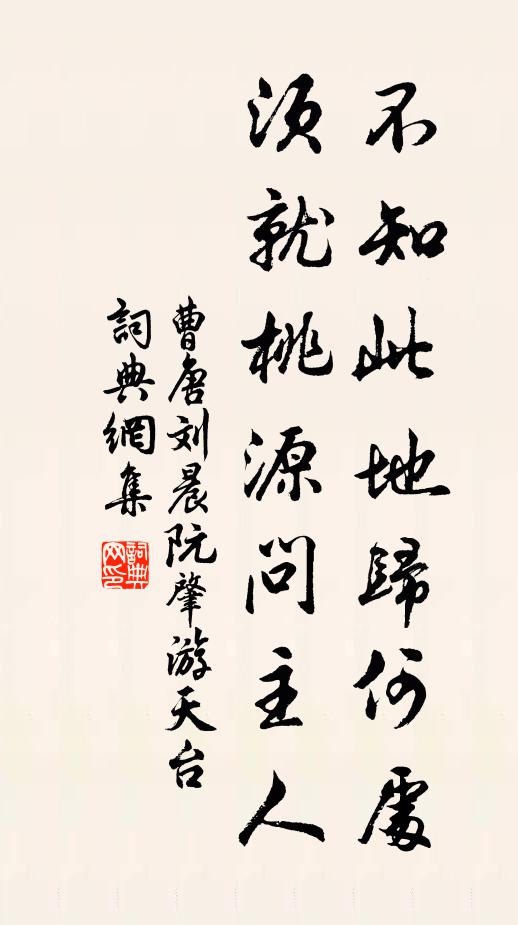 不知此地歸何處
須就桃源問主人
曹唐刘晨阮肇游天台
詞典網集
詞典網印